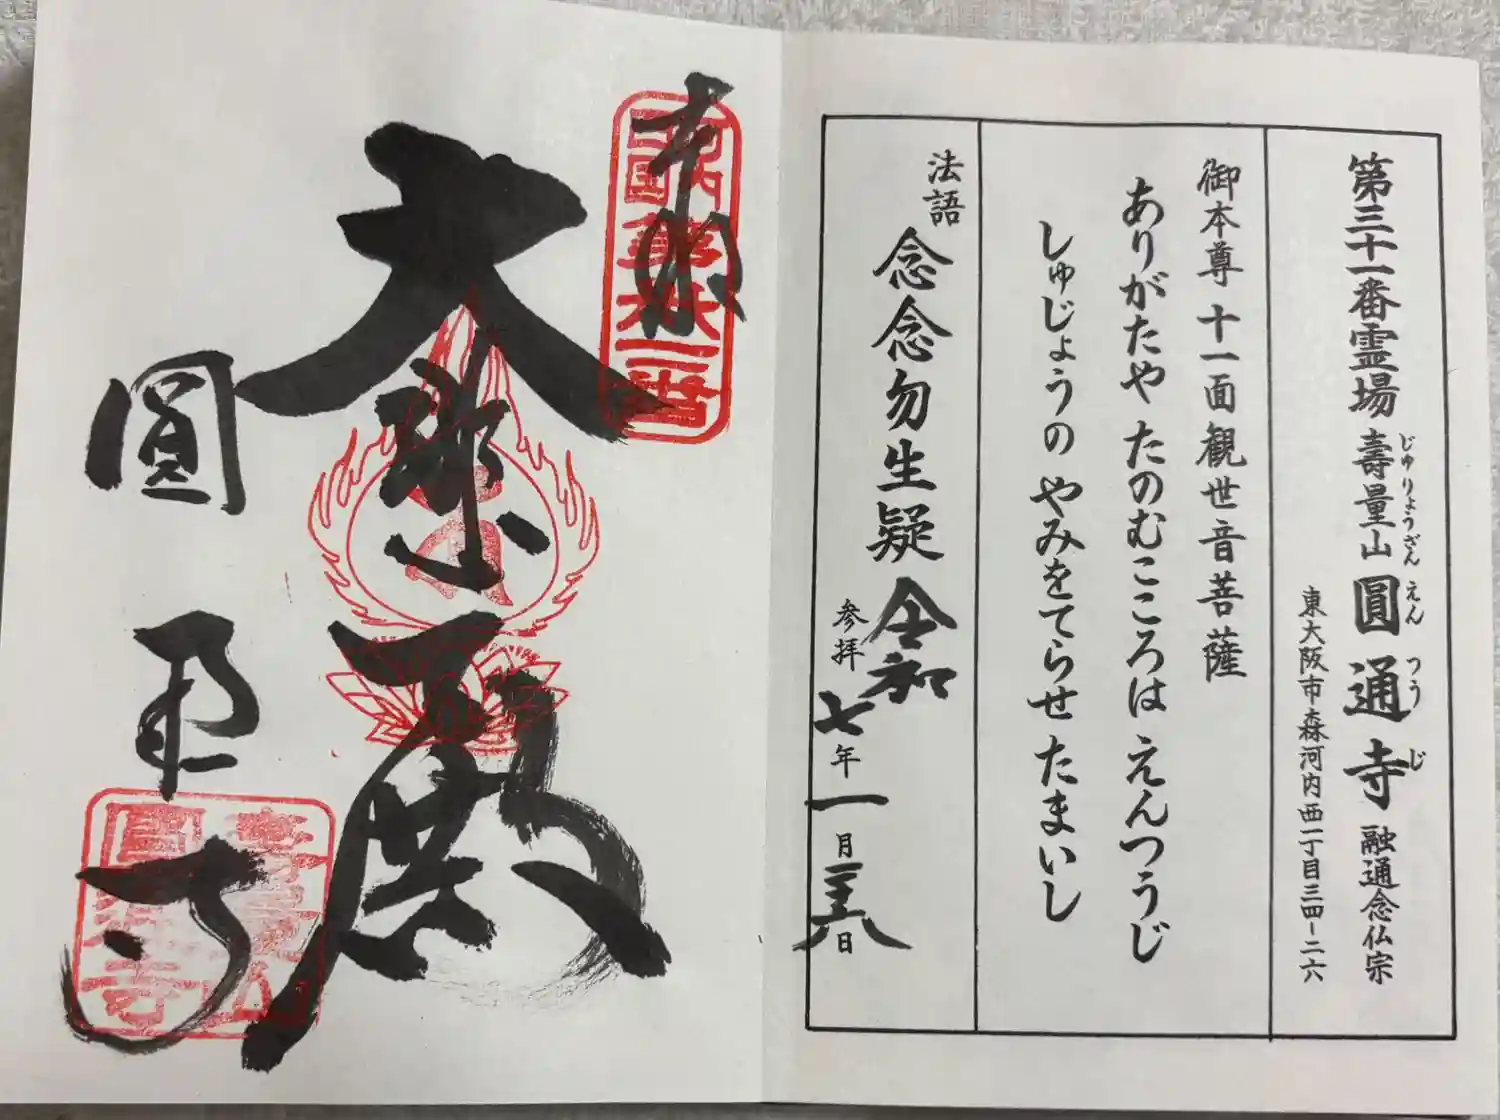 第三十一番霊場 壽量山 圓通寺 融通念仏宗
じゅりょうざん えんつうじ
東大阪市森河内西一丁目三四-二六
御本尊 十一面観世音菩薩
ありがたや たのむこころは えんつうじ
しゅじょうの やみをてらせ たまいし
法語 念念勿生疑
参拝 令和七年一月二十八日
奉拝
大悲殿
圓通寺
壽量山
圓通寺